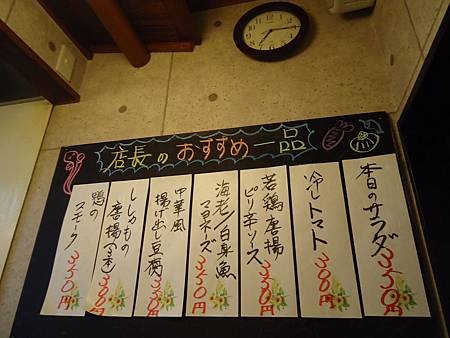 店長のおすすめ一品
本日のサラダ
350円
冷しトマト
300円
若鶏唐揚
ピリ辛ソース
350円
海老/白身魚
マヨネーズ
350円
中華風
揚げ出し豆腐
350円
ししゃもの
唐揚(3本)
300円
鴨の
スモーク
350円